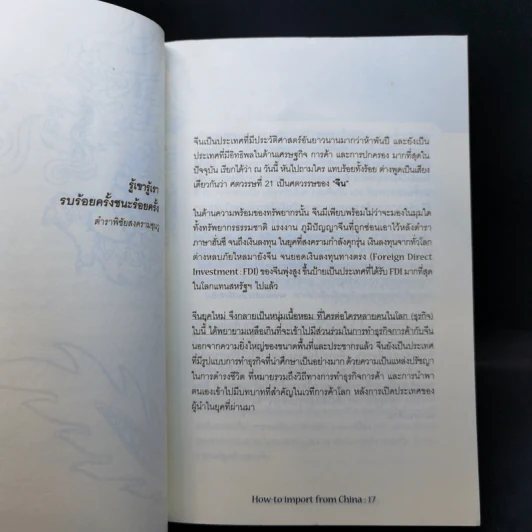 รู้เขารู้เรา
รบร้อยครั้งชนะร้อยครั้ง
ตำราพิชัยสงครามซุนวู
จีนเป็นประเทศที่มีประวัติศาสตร์อันยาวนานมากว่าห้าพันปี และยังเป็น
ประเทศที่มีอิทธิพลในด้านเศรษฐกิจ การค้า และการปกครอง มากที่สุดใน
ปัจจุบัน เรียกได้ว่า ณ วันนี้ หันไปถามใคร แทบร้อยทั้งร้อย ต่างพูดเป็นเสียง
เดียวกันว่า ศตวรรษที่ 21 เป็นศตวรรษของ "จีน"
ในด้านความพร้อมของทรัพยากรนั้น จีนมีเพียบพร้อมไม่ว่าจะมองในมุมใด
ทั้งทรัพยากรธรรมชาติ แรงงาน ภูมิปัญญาจีนที่ถูกซ่อนเอาไว้หลังตำรา
ภาษาฮั่นซี่ จนถึงเงินลงทุน ในยุคที่สงครามกำลังคุกรุ่น เงินลงทุนจากทั่วโลก
ต่างหลบภัยไหลมายังจีน จนยอดเงินลงทุนทางตรง (Foreign Direct
Investment : FDI) ของจีนพุ่งสูง ขึ้นป้ายเป็นประเทศที่ได้รับ FDI มากที่สุด
ในโลกแทนสหรัฐฯ ไปแล้ว
จีนยุคใหม่ จึงกลายเป็นหนุ่มเนื้อหอม ที่ใครต่อใครหลายคนในโลก (ธุรกิจ)
ใบนี้ ได้พยายามเหลือเกินที่จะเข้าไปมีส่วนร่วมในการทำธุรกิจการค้ากับจีน
นอกจากความยิ่งใหญ่ของขนาดพื้นที่และประชากรแล้ว จีนยังเป็นประเทศ
ที่มีรูปแบบการทำธุรกิจที่น่าศึกษาเป็นอย่างมาก ด้วยความเป็นแหล่งปรัชญา
ในการดำรงชีวิต ที่หมายรวมถึงวิถีทางการทำธุรกิจการค้า และการนำพา
ตนเองเข้าไปมีบทบาทที่สำคัญในเวทีการค้าโลก หลังการเปิดประเทศของ
ผู้นำในยุคที่ผ่านมา
How-to import from China : 17